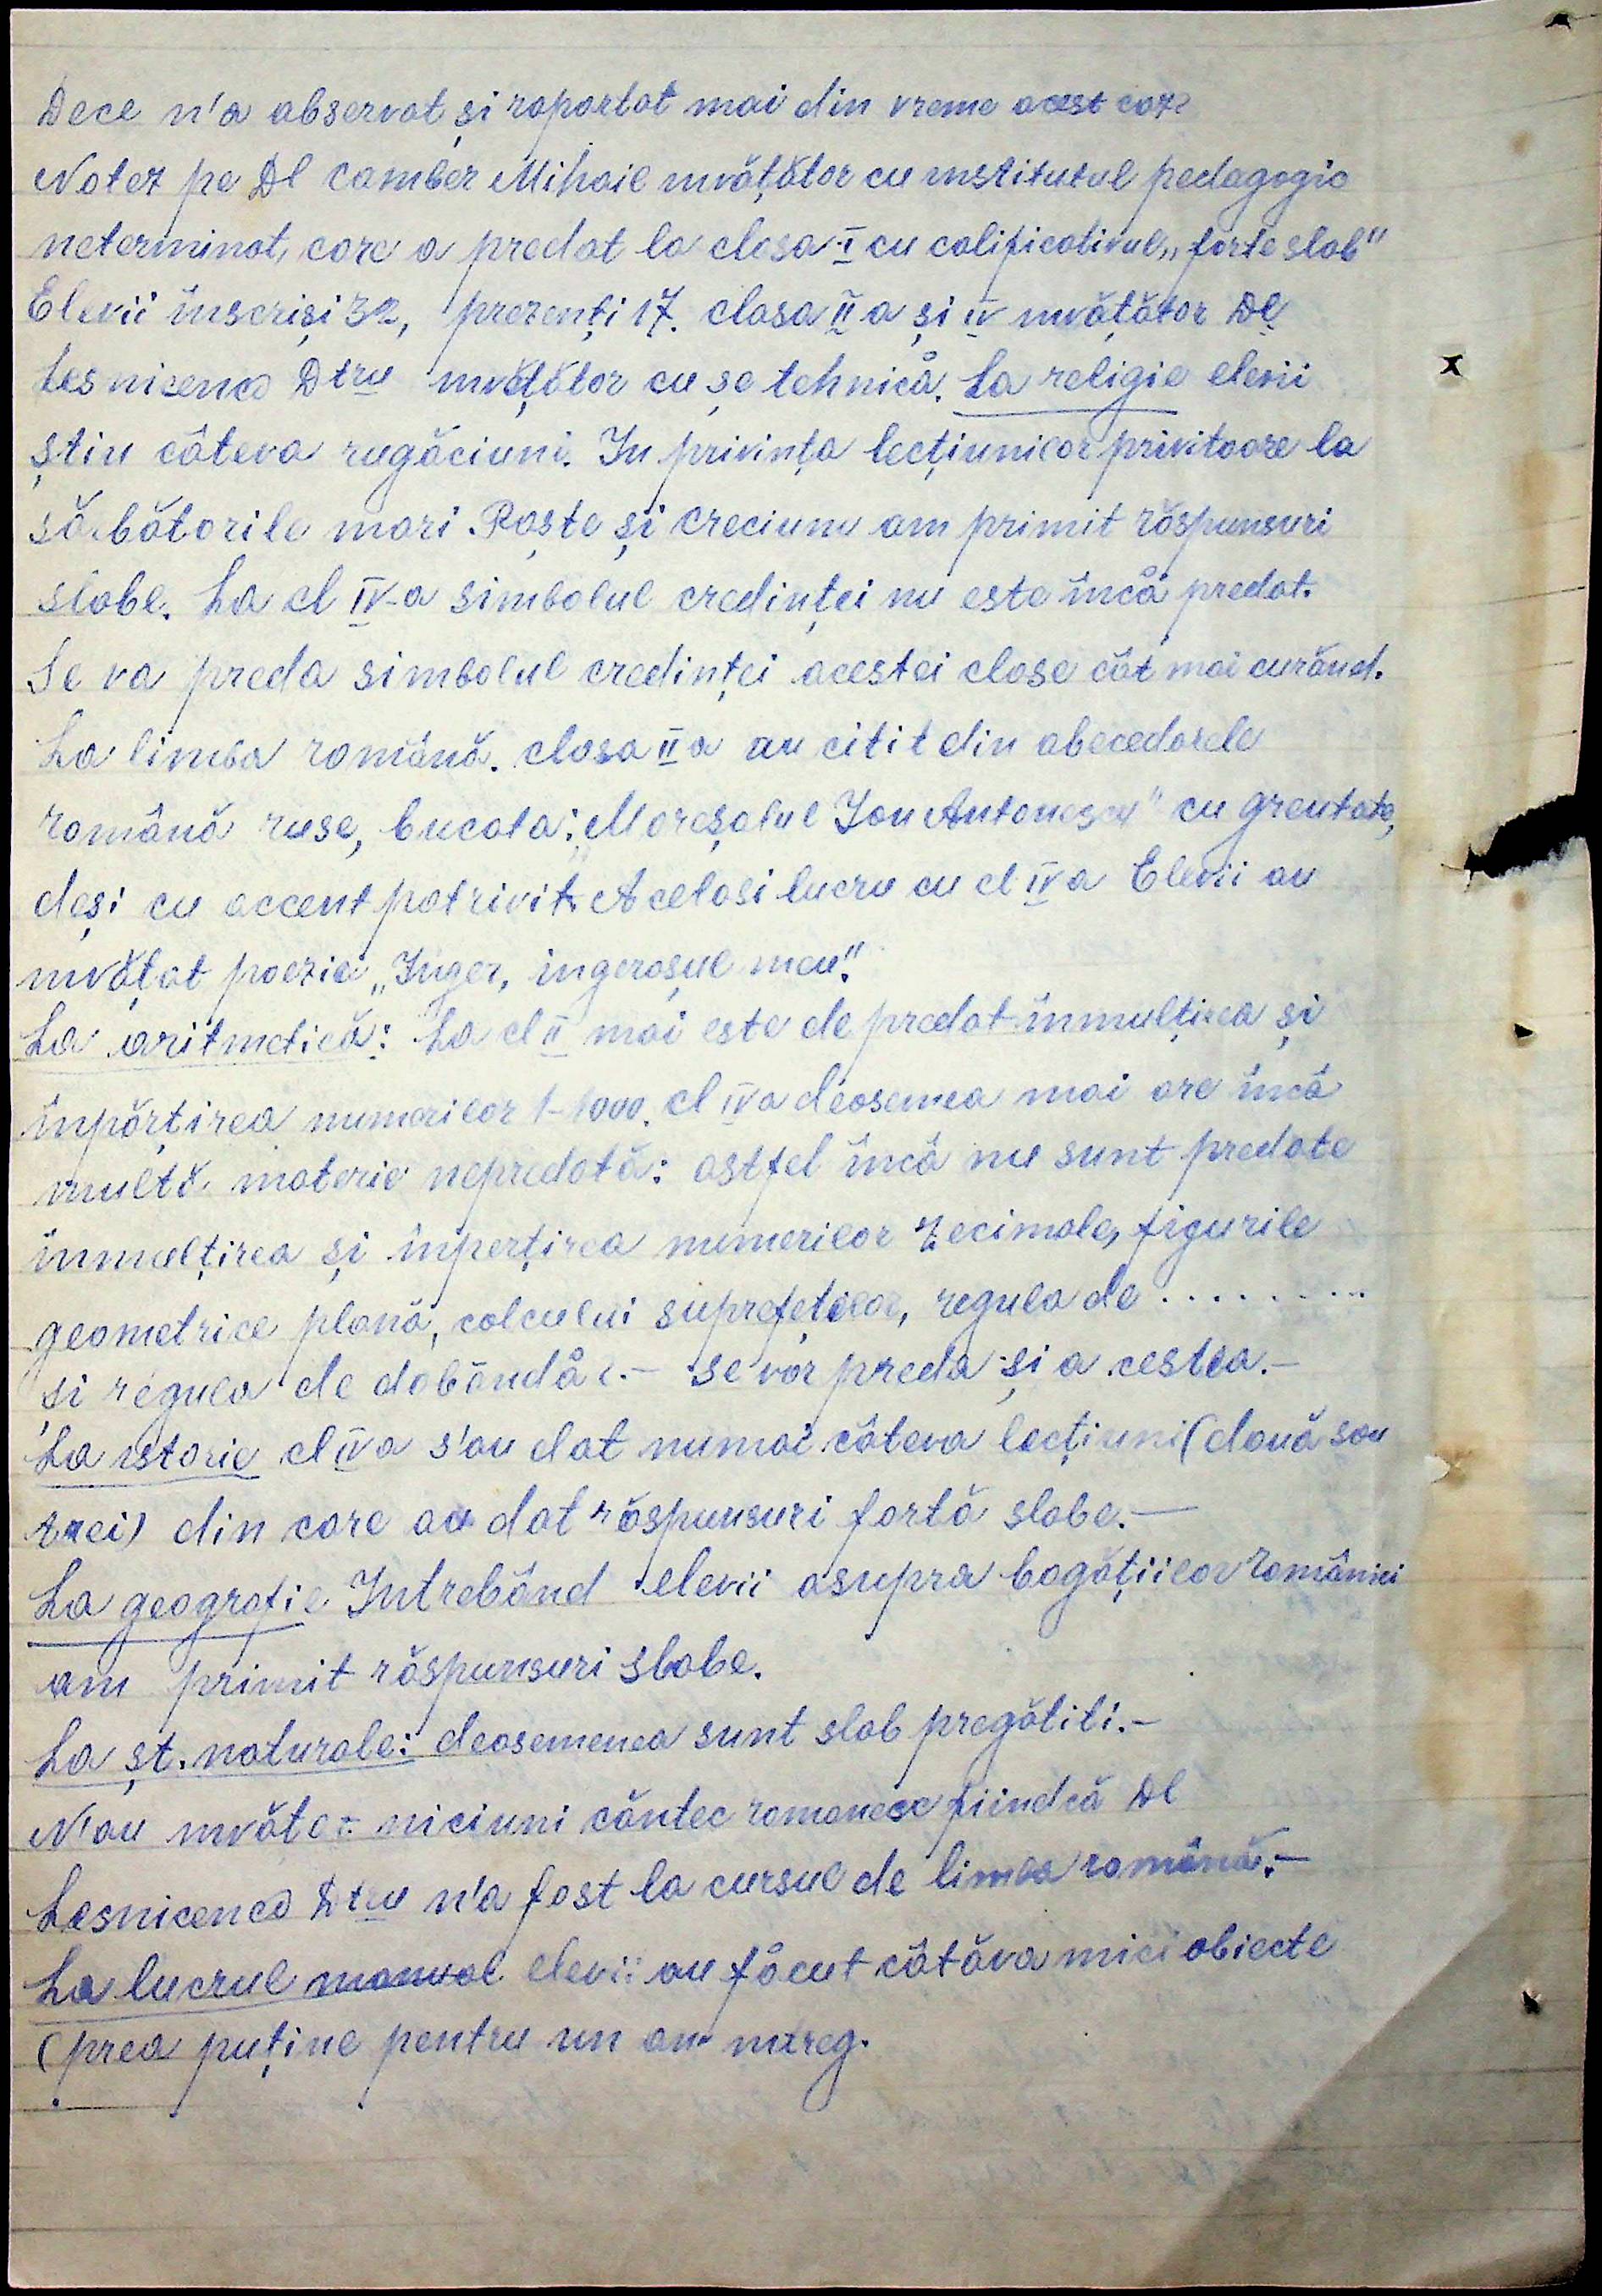 Dece n'a observat și raportat mai din vreme acest caz?
Notez pe Dl Camber Mihail învățător cu institutul pedagogic
neterminat, care a predat la clasa I cu calificativul „forte slab"
Elevii înscriși 32, prezenți 17. clasa II a și IV învățător Dl
Lesnicenco Dtru învățător cu șc tehnică. La religie elevii
știu câteva rugăciuni. In privința lecțiunilor privitoare la
sărbătorile mari. Paște și Creciunu am primit răspunsuri
slabe. La cl IV-a simbolul credinței nu este încă predat.
Se va preda simbolul credinței acestei clase cât mai curănd.
La limba română. clasa II a au citit din abecedarele
română ruse, bucata: „Mareșalul Ion Antonescu" cu greutate,
deși cu accent potrivit. Acelasi lucru cu cl IV a Elevii au
învățat poezia „Inger, ingerașul meu".
La aritmetică: La cl II mai este de predat inmulțirea și
înpărțirea numerilor 1-1000. cl IV a deosemea mai are încă
multă materie nepredată: astfel încă nu sunt predate
inmulțirea și inperțirea numerilor zecimale, figurile
geometrice plană, calcului suprefețelor, regula de .........
și regula de dobăndă.- se vor preda și a cestea.-
La istorie cl IV a s'au dat numai câteva lecțiuni (două sau
trei) din care au dat răspunsuri fortă slabe.-
La geografie Intrebând elevii asupra bogățiilor româniei
am primit răspunsuri slabe.
La șt. naturale: deosemenea sunt slab pregătiti.-
N'au învătat niciuni căntec romanesc fiindcă Dl
Lesnicenco Dtru n'a fost la cursul de limba română.-
La lucrul manual elevii au făcut câtăva mici obiecte
(prea puține pentru un an întreg.